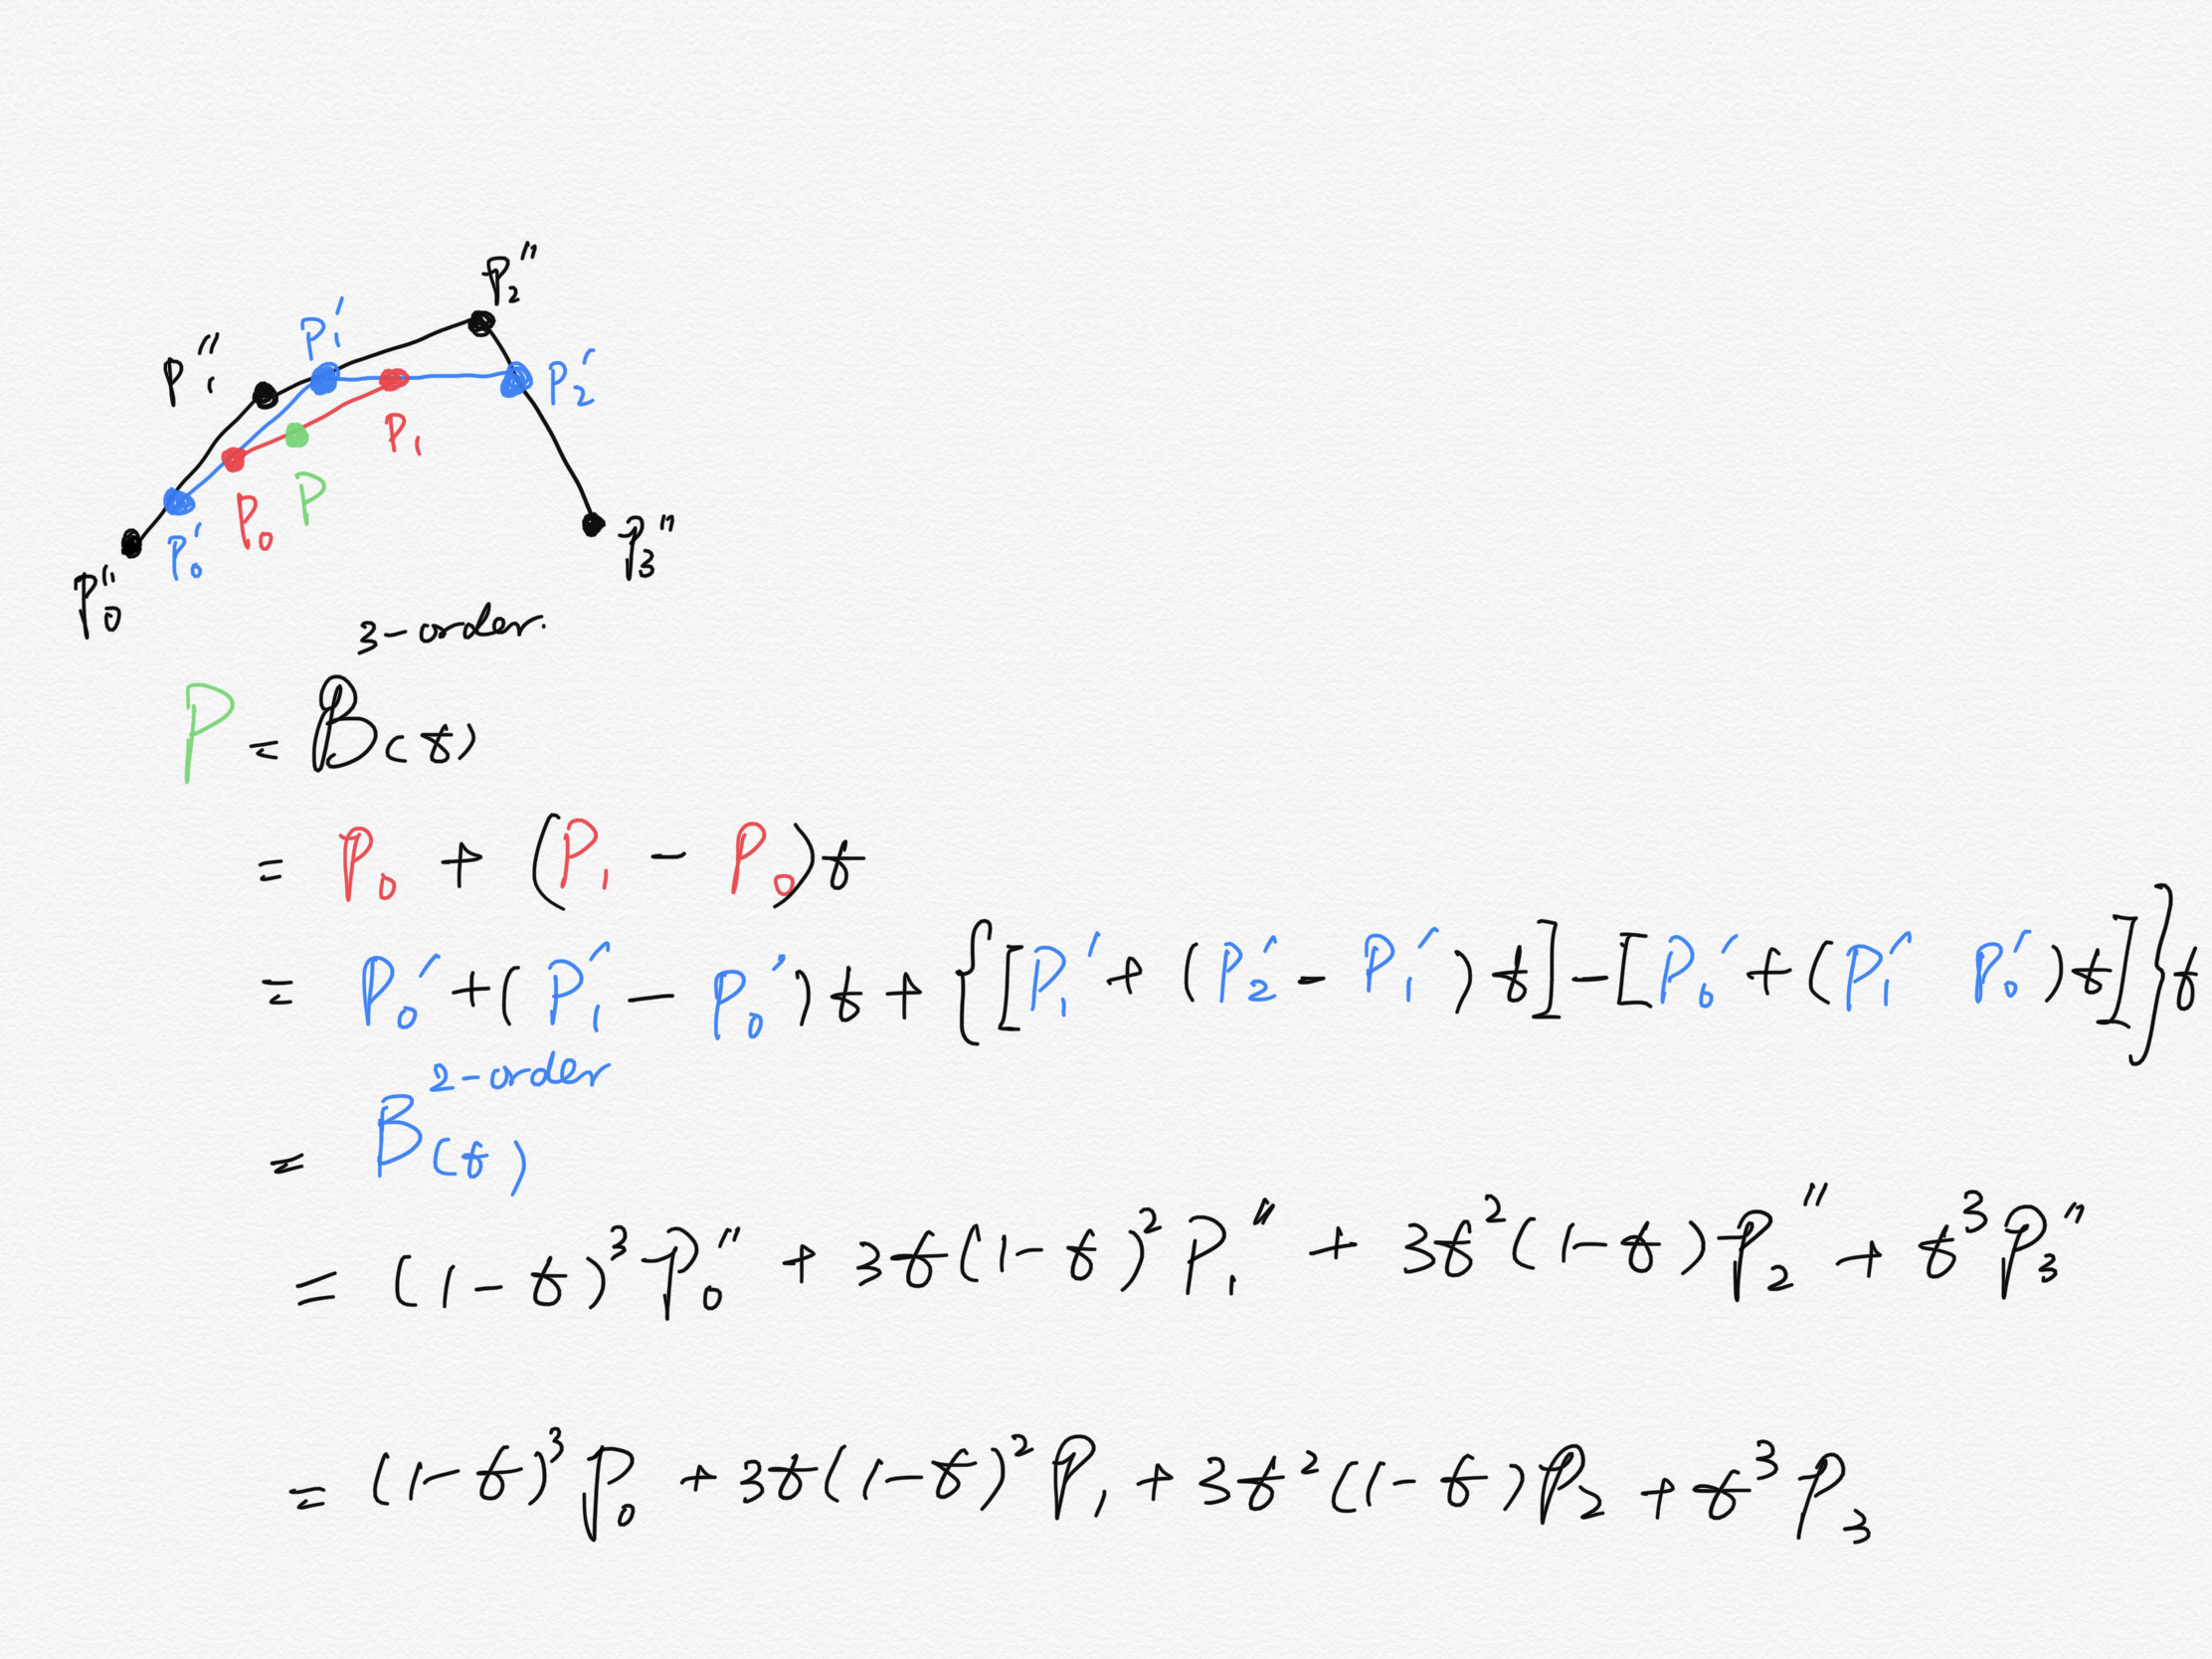 P₂″
P₁′
P₁″
P₂′
P₁
P
P₀
P₀′
P₃″
P₀″
3-order.
P = B(t)
= P₀ + (P₁ − P₀)t
= P₀′ + (P₁′ − P₀′)t + {[P₁′ + (P₂′ − P₁′)t] − [P₀′ + (P₁′ P₀′)t]}t
2-order
= B(t)
= (1−t)³P₀″ + 3t(1−t)²P₁″ + 3t²(1−t)P₂″ + t³P₃″
= (1−t)³P₀ + 3t(1−t)²P₁ + 3t²(1−t)P₂ + t³P₃